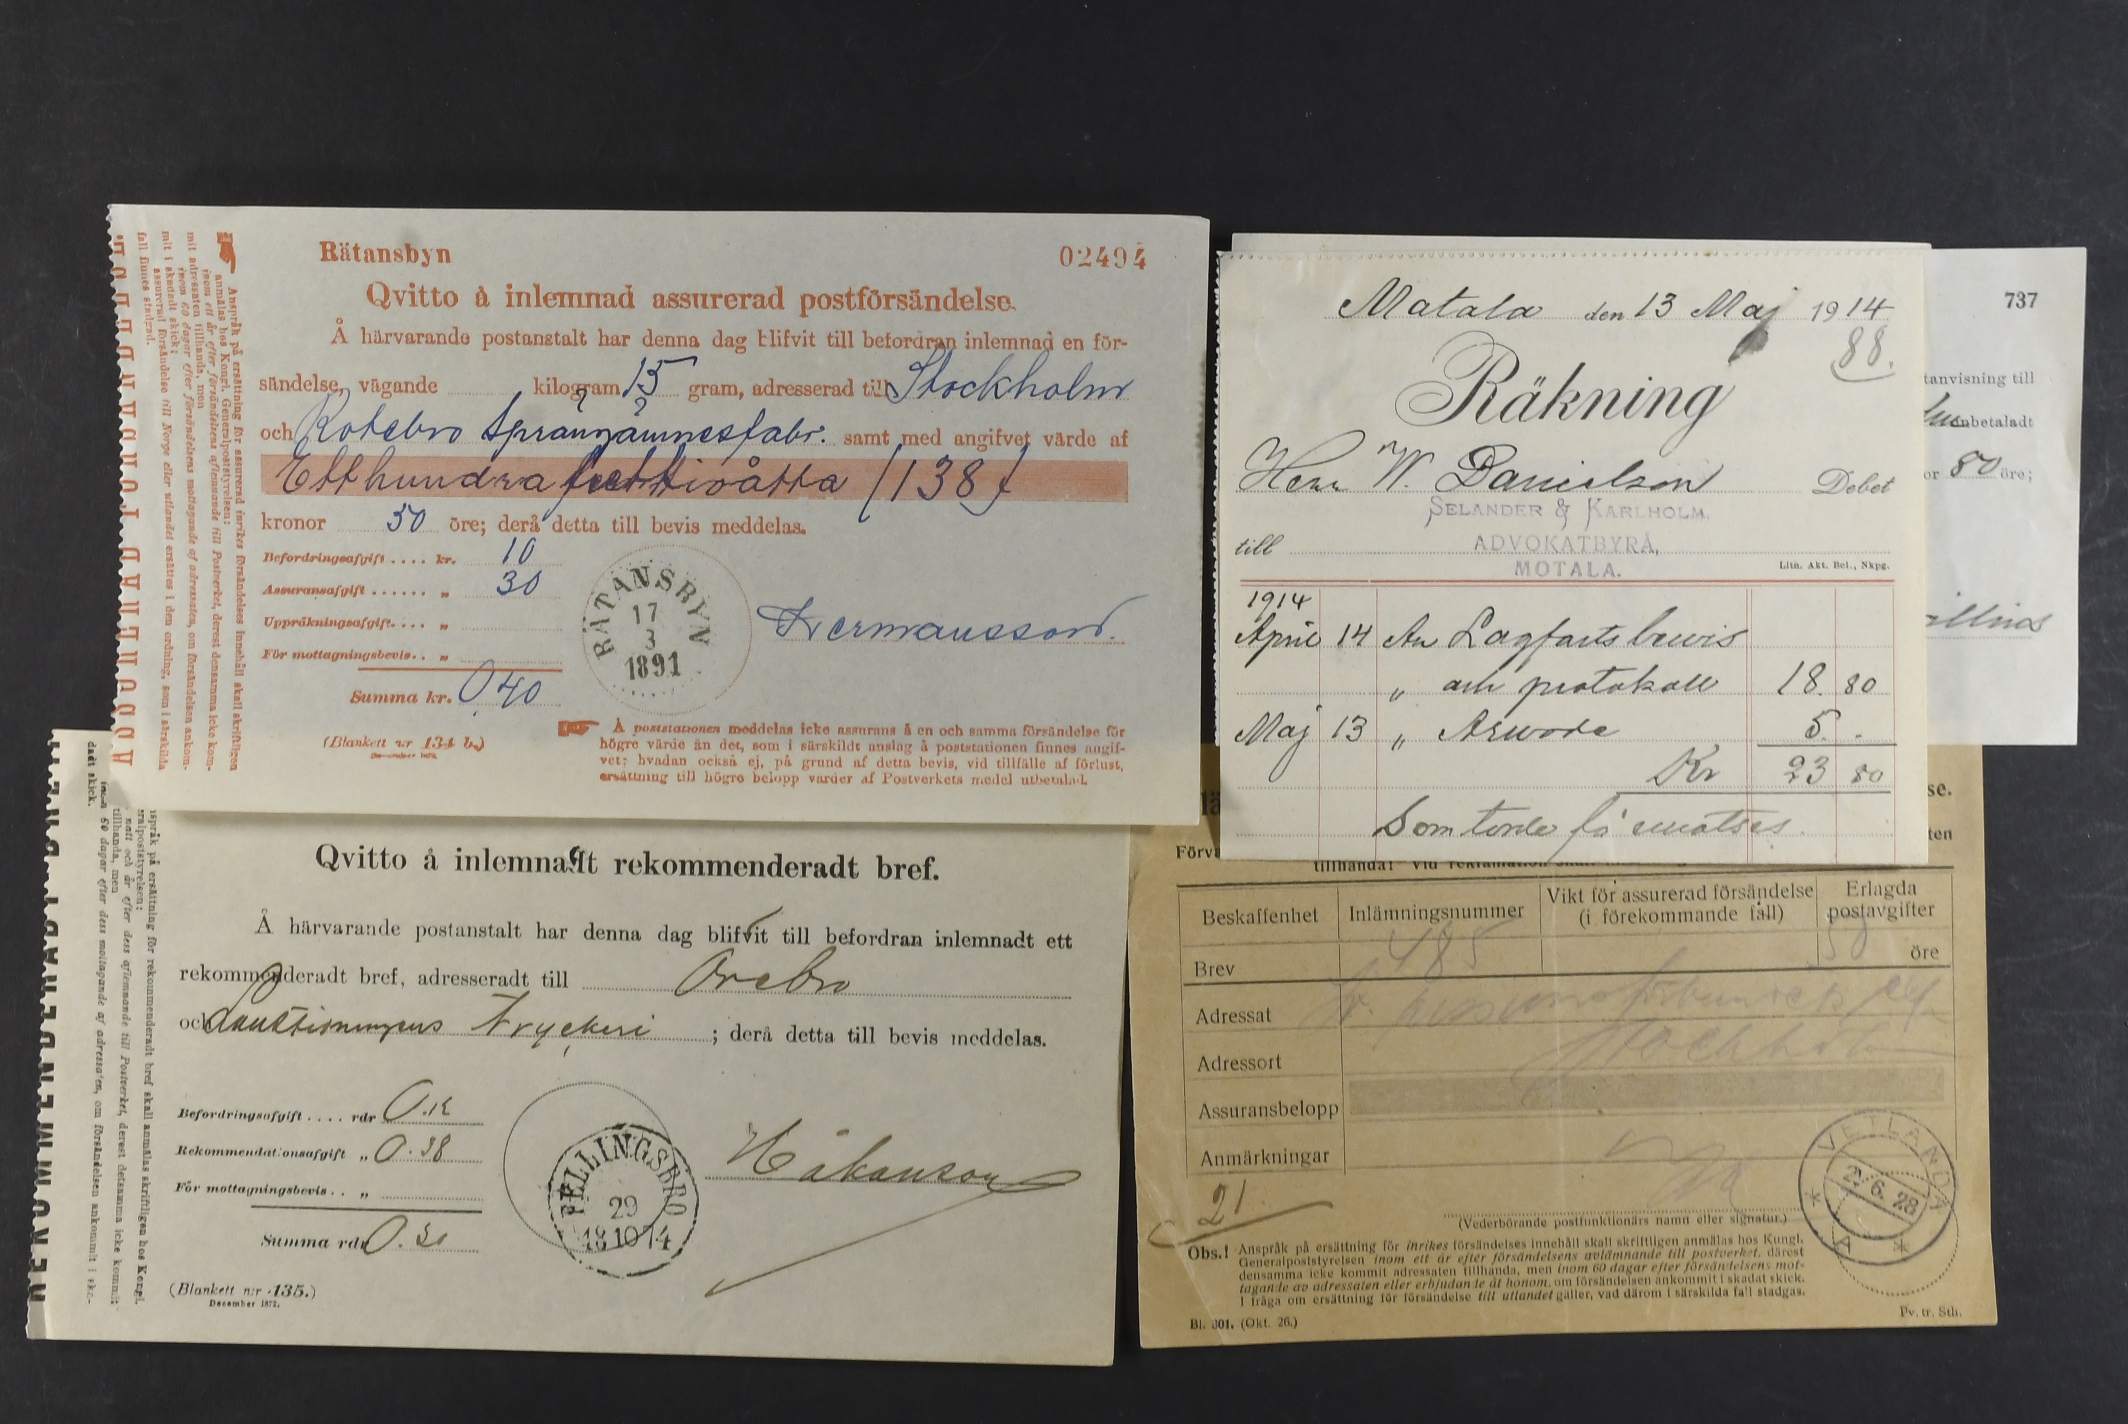 Rätansbyn
02494
Qvitto å inlemnad assurerad postförsändelse.
Å härvarande postanstalt har denna dag blifvit till befordran inlemnad en för-
sändelse, vägande kilogram 15 gram, adresserad till Stockholm
och Rotebro Sprängämnesfabr. samt med angifvet värde af
Etthundra trettioåtta (138)
kronor 50 öre; derå detta till bevis meddelas.
Befordringsafgift .... kr. 10
Assuransafgift ...... „ 30
Uppräkningsafgift.... „
För mottagningsbevis.. „
Summa kr. 0,40
RÄTANSBYN
17
3
1891
Hermansson.
(Blankett nr 134 b.)
Å poststationen meddelas icke assurans å en och samma försändelse för
högre värde än det, som i särskildt anslag å poststationen finnes angif-
vet; hvadan också ej, på grund af detta bevis, vid tillfälle af förlust,
ersättning till högre belopp varder af Postverkets medel utbetalad.
Anspråk på ersättning för assurerad inrikes försändelses innehåll skall skriftligen
anmälas hos Kongl. Generalpoststyrelsen:
inom ett år efter försändelsens aflemnande till Postverket, derest densamma icke kom-
mit adressaten tillhanda, men
inom 60 dagar efter försändelsens mottagande af adressaten, om försändelsen ankom-
mit i skadadt skick;
assurerad försändelse till Norge eller utlandet ersättes i den ordning, som i särskilda
fall finnes stadgad.
Matala den 13 Maj 1914
88.
Räkning
Herr W. Danielson Debet
SELANDER & KARLHOLM.
till
ADVOKATBYRÅ,
MOTALA.
Lith. Akt. Bol., Nkpg.
1914
April 14 An Lagfartsbevis
„ och protokoll 18. 80
Maj 13 „ Arvode 5. .
Kr 23 80
Som torde få emotses.
737
tanvisning till
inbetaladt
or 80 öre;
Qvitto å inlemnadt rekommenderadt bref.
Å härvarande postanstalt har denna dag blifvit till befordran inlemnadt ett
rekommenderadt bref, adresseradt till Örebro
och Tryckeri ; derå detta till bevis meddelas.
Befordringsafgift .... rdr 0.12
Rekommendationsafgift „ 0.38
För mottagningsbevis .. „
Summa rdr
FELLINGSBRO
29
18 10 74
Håkanson
(Blankett n:r 135.)
December 1872.
REKOMMENDERADT BREF
språk på ersättning för rekommenderadt bref skall anmälas skriftligen hos Kongl.
ralpoststyrelsen:
natt och år efter dess aflemnande till Postverket, derest detsamma icke kommit
tillhanda, men
inom 60 dagar efter dess mottagande af adressaten, om försändelsen ankommit i ska-
dadt skick.
se.
ten
Förva
tillhanda!
Beskaffenhet
Inlämningsnummer
Vikt för assurerad försändelse
(i förekommande fall)
Erlagda
postavgifter
Brev 485 50 öre
Adressat
Adressort Stockholm
Assuransbelopp
Anmärkningar
21
VETLANDA
2. 6. 28
(Vederbörande postfunktionärs namn eller signatur.)
Obs.! Anspråk på ersättning för inrikes försändelses innehåll skall skriftligen anmälas hos Kungl.
Generalpoststyrelsen inom ett år efter försändelsens avlämnande till postverket, därest
densamma icke kommit adressaten tillhanda, men inom 60 dagar efter försändelsens mot-
tagande av adressaten eller erbjudande åt honom, om försändelsen ankommit i skadat skick.
I fråga om ersättning för försändelse till utlandet gäller, vad därom i särskilda fall stadgas.
Bl. 301. (Okt. 26.)
Pv. tr. Sth.